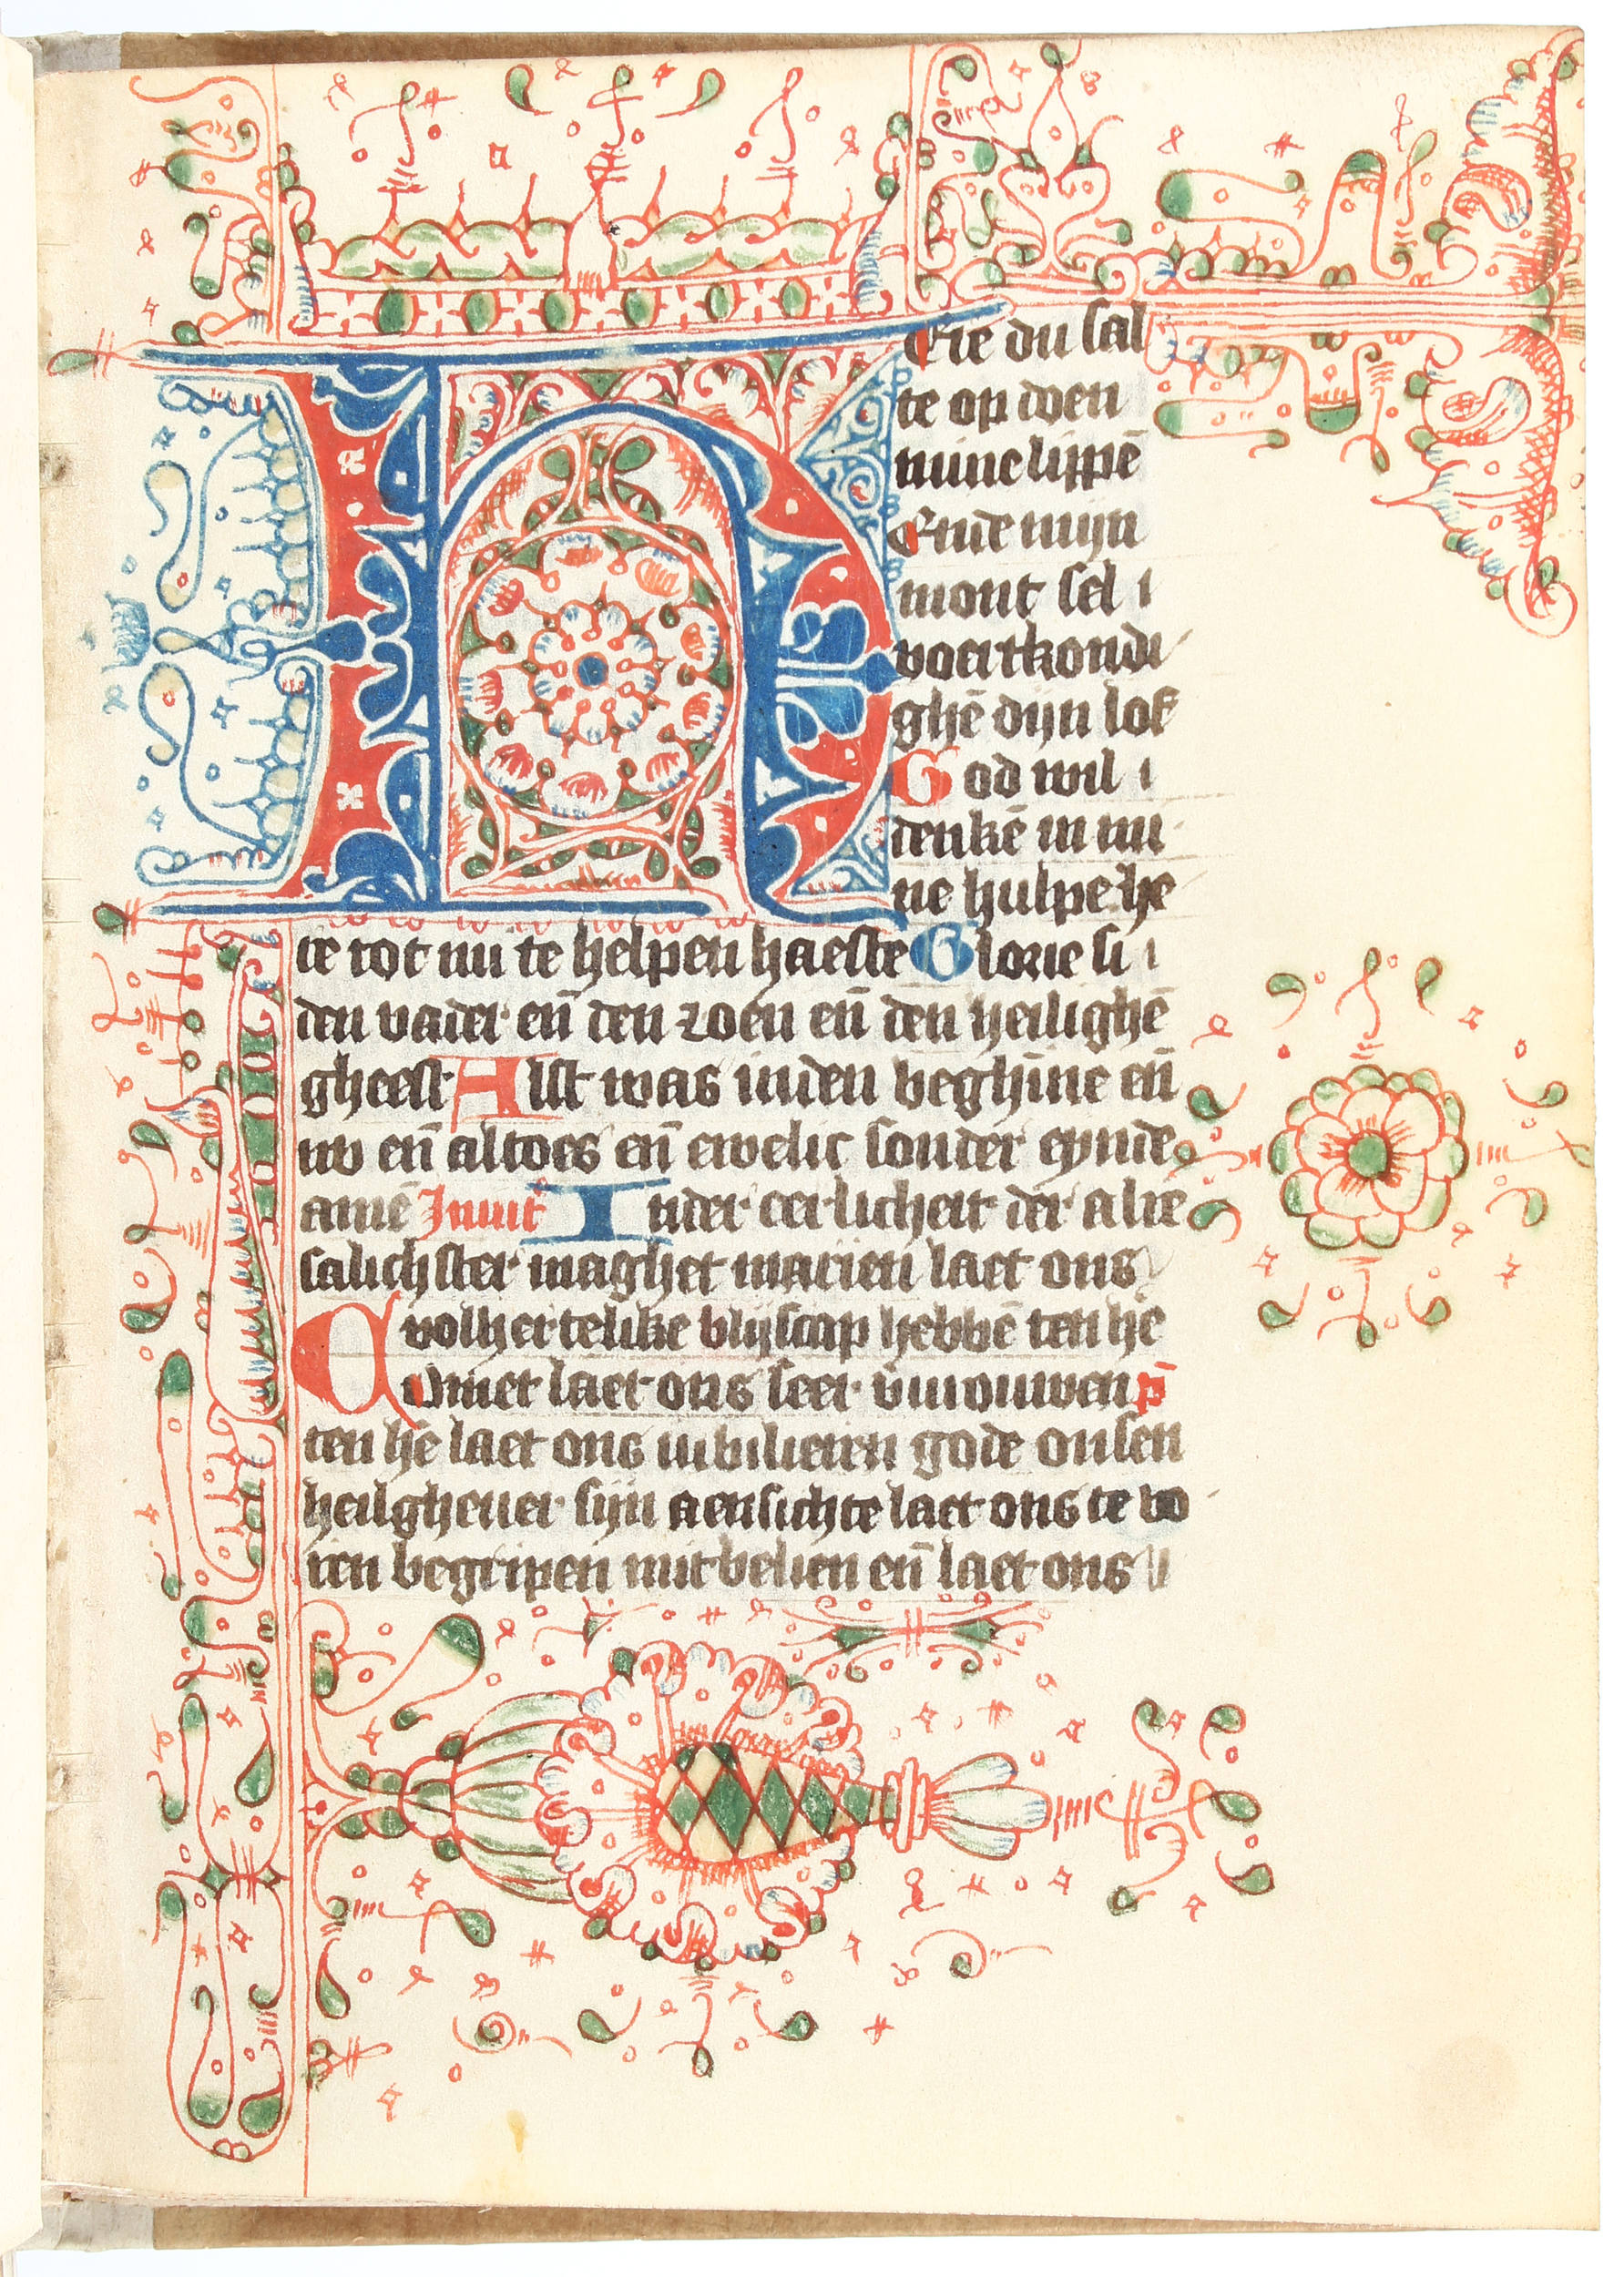 HEre du sal
te op doen
mine lippē
Ende mijn
mont sel
voertkondi
ghē dijn lof
God wil
denkē in mi
ne hulpe he
re tot mi te helpen haeste Glorie si
den vader eñ den zoen eñ den heilighē
gheest Alst was inden beghīne eñ
nv eñ altoes eñ ewelic sonder eynde
amē Inuit Inder eerlicheit der alre
salichster maghet marien laet ons
volhertelike blijscap hebbē ten hē
Comet laet ons seer v̄urouwen p̄s
ten hē laet ons iubilieren gode onsen
heilgheuer sijn aensichte laet ons te vo
ren begripen mit belien eñ laet ons